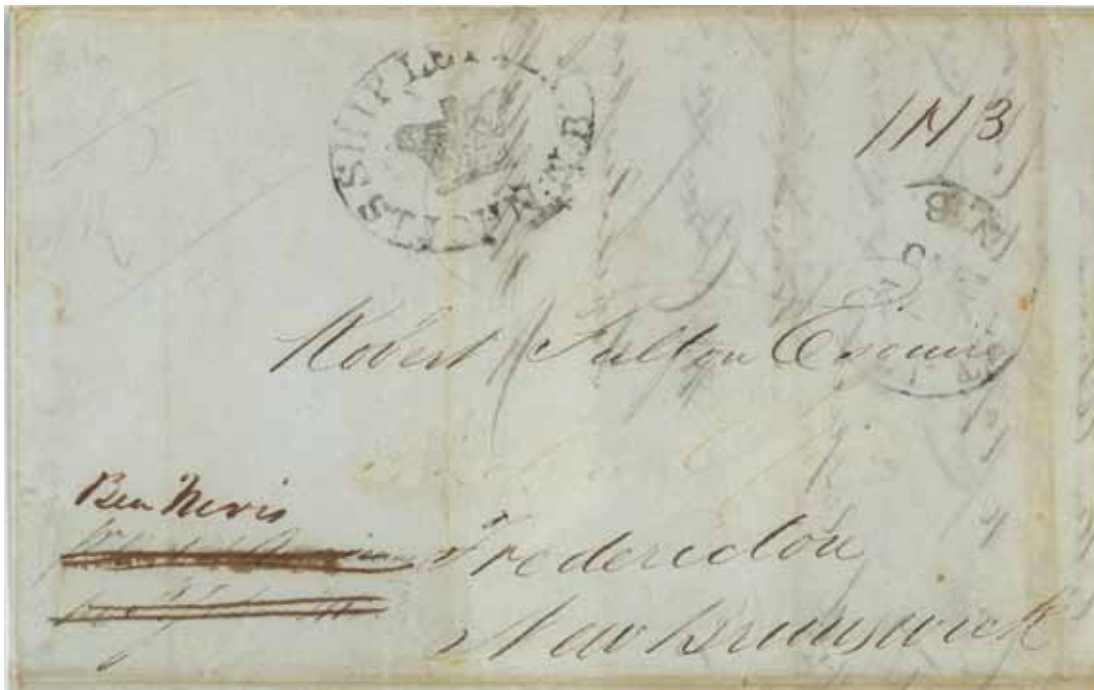 SHIP LETTER
ST ANDREWS N.B
1N3
Robert Fulton Esquire
Ben Nevis
Fredericton
New Brunswick